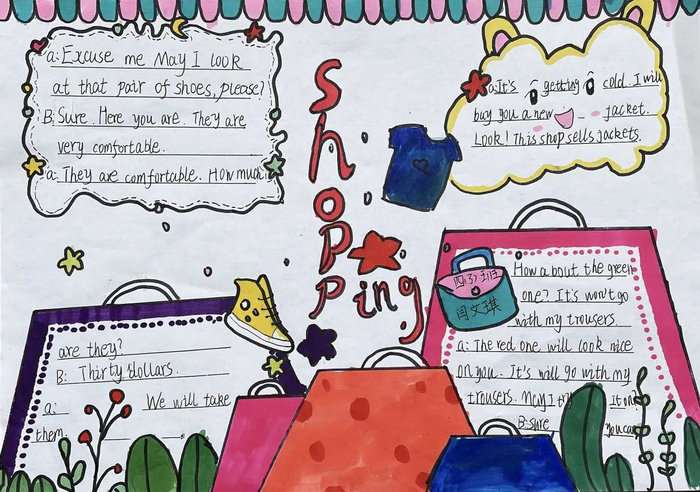 a: Excuse me May I look
at that pair of shoes, please?
B: Sure. Here you are. They are
very comfortable.
a: They are comfortable. How much
are they?
B: Thirty dollars.
a: We will take
them.
Shopping
a: It's getting cold. I will
buy you a new jacket.
Look! This shop sells jackets.
How about the green
one? It's won't go
with my trousers.
a: The red one will look nice
on you. It's will go with my
trousers. May I it on
B: sure you can
闫文琪